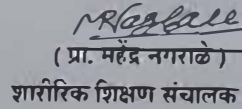 ( प्रा. महेंद्र नगराळे )
शारीरिक शिक्षण संचालक